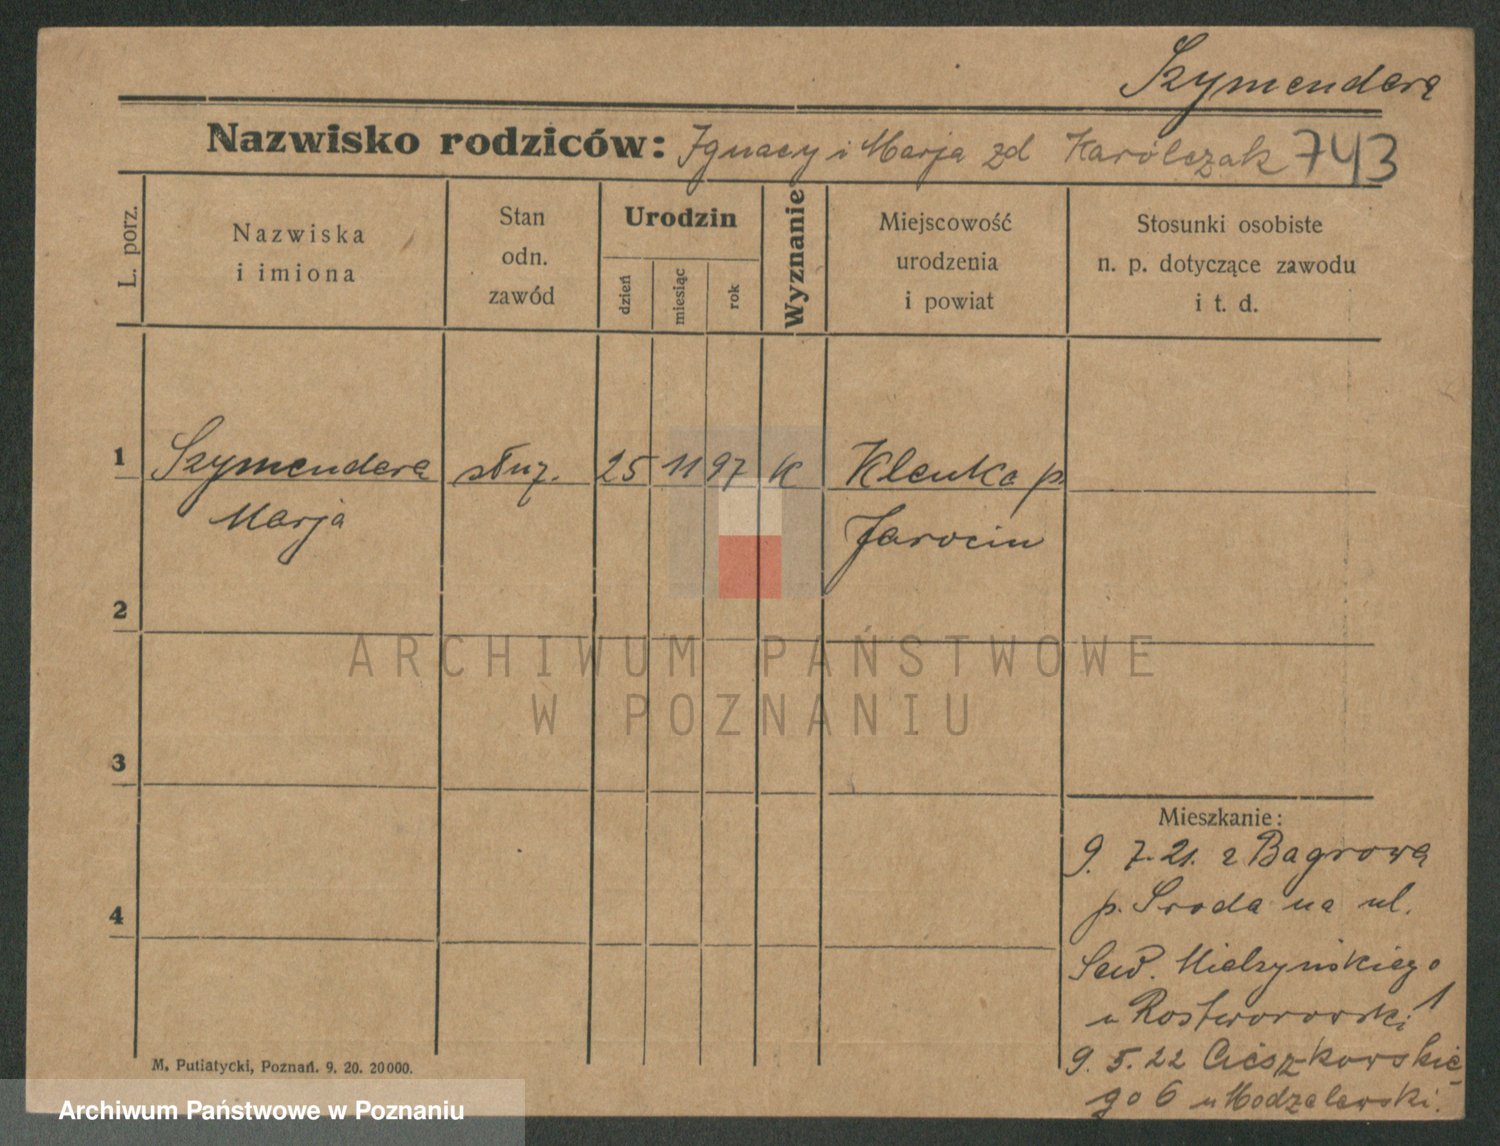 Szymenderą
Nazwisko rodziców: Ignacy i Marja zd Karólczak 743
L. porz.
Nazwiska
i imiona
Stan
odn.
zawód
Urodzin
dzień
miesiąc
rok
Wyznanie
Miejscowość
urodzenia
i powiat
Stosunki osobiste
n. p. dotyczące zawodu
i t. d.
1 Szymenderą służ. 25 11 97 k Klenka p.
Marja Jarocin
2
3
4
Mieszkanie:
9. 7. 21. z Bagrową
p. Środa na ul.
Sew. Mielzyńskiego
u Rostworowski 1
9. 5. 22 Cieszkowskie-
go 6 u Modzelewski.
M. Putiatycki, Poznań. 9. 20. 20000.
ARCHIWUM PAŃSTWOWE
W POZNANIU
Archiwum Państwowe w Poznaniu